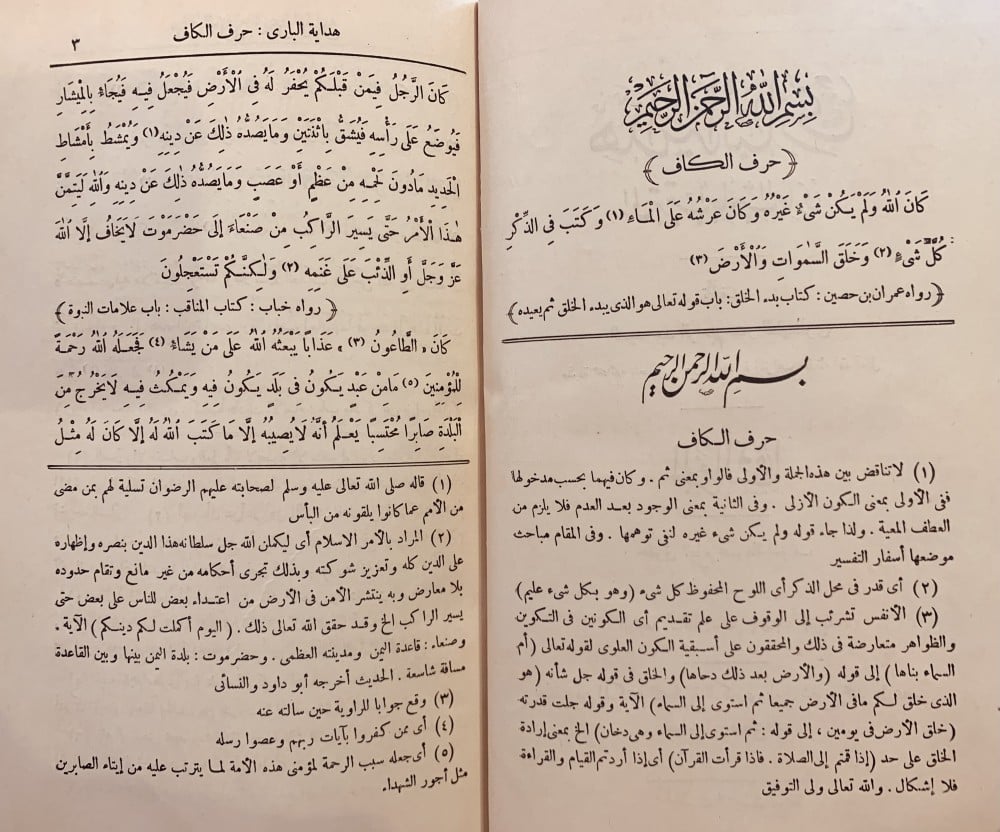 بِسْمِ اللهِ الرَّحْمَنِ الرَّحِيمِ
﴿ حرف الكاف ﴾
كَانَ اللهُ وَلَمْ يَكُنْ شَىْءٌ غَيْرُهُ وَكَانَ عَرْشُهُ عَلَى الْمَاءِ (١) وَكَتَبَ فِى الذِّكْرِ
كُلَّ شَىْءٍ (٢) وَخَلَقَ السَّمٰوَاتِ وَالْأَرْضَ (٣)
﴿ رواه عمران بن حصين : كتاب بدء الخلق : باب قوله تعالى هو الذى يبدء الخلق ثم يعيده ﴾
بسم الله الرحمن الرحيم
حرف الكاف
(١) لا تناقض بين هذه الجملة والأولى فالواو بمعنى ثم . وكان فيهما بحسب مدخولها
ففى الأولى بمعنى الكون الأزلى . وفى الثانية بمعنى الوجود بعد العدم فلا يلزم من
العطف المعية . ولذا جاء قوله ولم يكن شىء غيره لنفى توهمها . وفى المقام مباحث
موضعها أسفار التفسير
(٢) أى قدر فى محل الذكر أى اللوح المحفوظ كل شىء (وهو بكل شىء عليم)
(٣) الأنفس تشرئب إلى الوقوف على علم تقديم أى الكونين فى التكوين
والظواهر متعارضة فى ذلك والمحققون على أسبقية الكون العلوى لقوله تعالى (أم
السماء بناها) إلى قوله (والأرض بعد ذلك دحاها) والخلق فى قوله جل شأنه (هو
الذى خلق لكم ما فى الأرض جميعا ثم استوى إلى السماء) الآية وقوله جلت قدرته
(خلق الأرض فى يومين ، إلى قوله : ثم استوى إلى السماء وهى دخان) الخ بمعنى إرادة
الخلق على حد (إذا قمتم إلى الصلاة . فاذا قرأت القرآن) أى إذا أردتم القيام والقراءة
فلا إشكال . والله تعالى ولى التوفيق
هداية البارى : حرف الكاف ٣
كَانَ الرَّجُلُ فِيمَنْ قَبْلَكُمْ يُحْفَرُ لَهُ فِى الْأَرْضِ فَيُجْعَلُ فِيهِ فَيُجَاءُ بِالْمِيْشَارِ
فَيُوضَعُ عَلَى رَأْسِهِ فَيُشَقُّ بِاثْنَتَيْنِ وَمَا يَصُدُّهُ ذٰلِكَ عَنْ دِينِهِ (١) وَيُمْشَطُ بِأَمْشَاطِ
الْحَدِيدِ مَا دُونَ لَحْمِهِ مِنْ عَظْمٍ أَوْ عَصَبٍ وَمَا يَصُدُّهُ ذٰلِكَ عَنْ دِينِهِ وَاللهِ لَيَتِمَّنَّ
هٰذَا الْأَمْرُ حَتَّى يَسِيرَ الرَّاكِبُ مِنْ صَنْعَاءَ إِلَى حَضْرَمَوْتَ لَا يَخَافُ إِلَّا اللهَ
عَزَّ وَجَلَّ أَوِ الذِّئْبَ عَلَى غَنَمِهِ (٢) وَلٰكِنَّكُمْ تَسْتَعْجِلُونَ
﴿ رواه خباب : كتاب المناقب : باب علامات النبوة ﴾
كَانَ « الطَّاعُونُ (٣) » عَذَابًا يَبْعَثُهُ اللهُ عَلَى مَنْ يَشَاءُ (٤) فَجَعَلَهُ اللهُ رَحْمَةً
لِلْمُؤْمِنِينَ (٥) مَا مِنْ عَبْدٍ يَكُونُ فِى بَلَدٍ يَكُونُ فِيهِ وَيَمْكُثُ فِيهِ لَا يَخْرُجُ مِنَ
الْبَلْدَةِ صَابِرًا مُحْتَسِبًا يَعْلَمُ أَنَّهُ لَا يُصِيبُهُ إِلَّا مَا كَتَبَ اللهُ لَهُ إِلَّا كَانَ لَهُ مِثْلُ
(١) قاله صلى الله تعالى عليه وسلم لصحابته عليهم الرضوان تسلية لهم بمن مضى
من الأمم عما كانوا يلقونه من البأس
(٢) المراد بالأمر الاسلام أى ليكملن الله جل سلطانه هذا الدين بنصره وإظهاره
على الدين كله وتعزيز شوكته وبذلك تجرى أحكامه من غير مانع وتقام حدوده
بلا معارض وبه ينتشر الأمن فى الأرض من اعتداء بعض للناس على بعض حتى
يسير الراكب الخ وقد حقق الله تعالى ذلك . (اليوم أكملت لكم دينكم) الآية .
وصنعاء : قاعدة اليمن ومدينته العظمى . وحضرموت : بلدة اليمن بينها وبين القاعدة
مسافة شاسعة . الحديث أخرجه أبو داود والنسائى
(٣) وقع جوابا للراوية حين سالته عنه
(٤) أى من كفروا بآيات ربهم وعصوا رسله
(٥) أى جعله سبب الرحمة لمؤمنى هذه الأمة لما يترتب عليه من إيتاء الصابرين
مثل أجور الشهداء